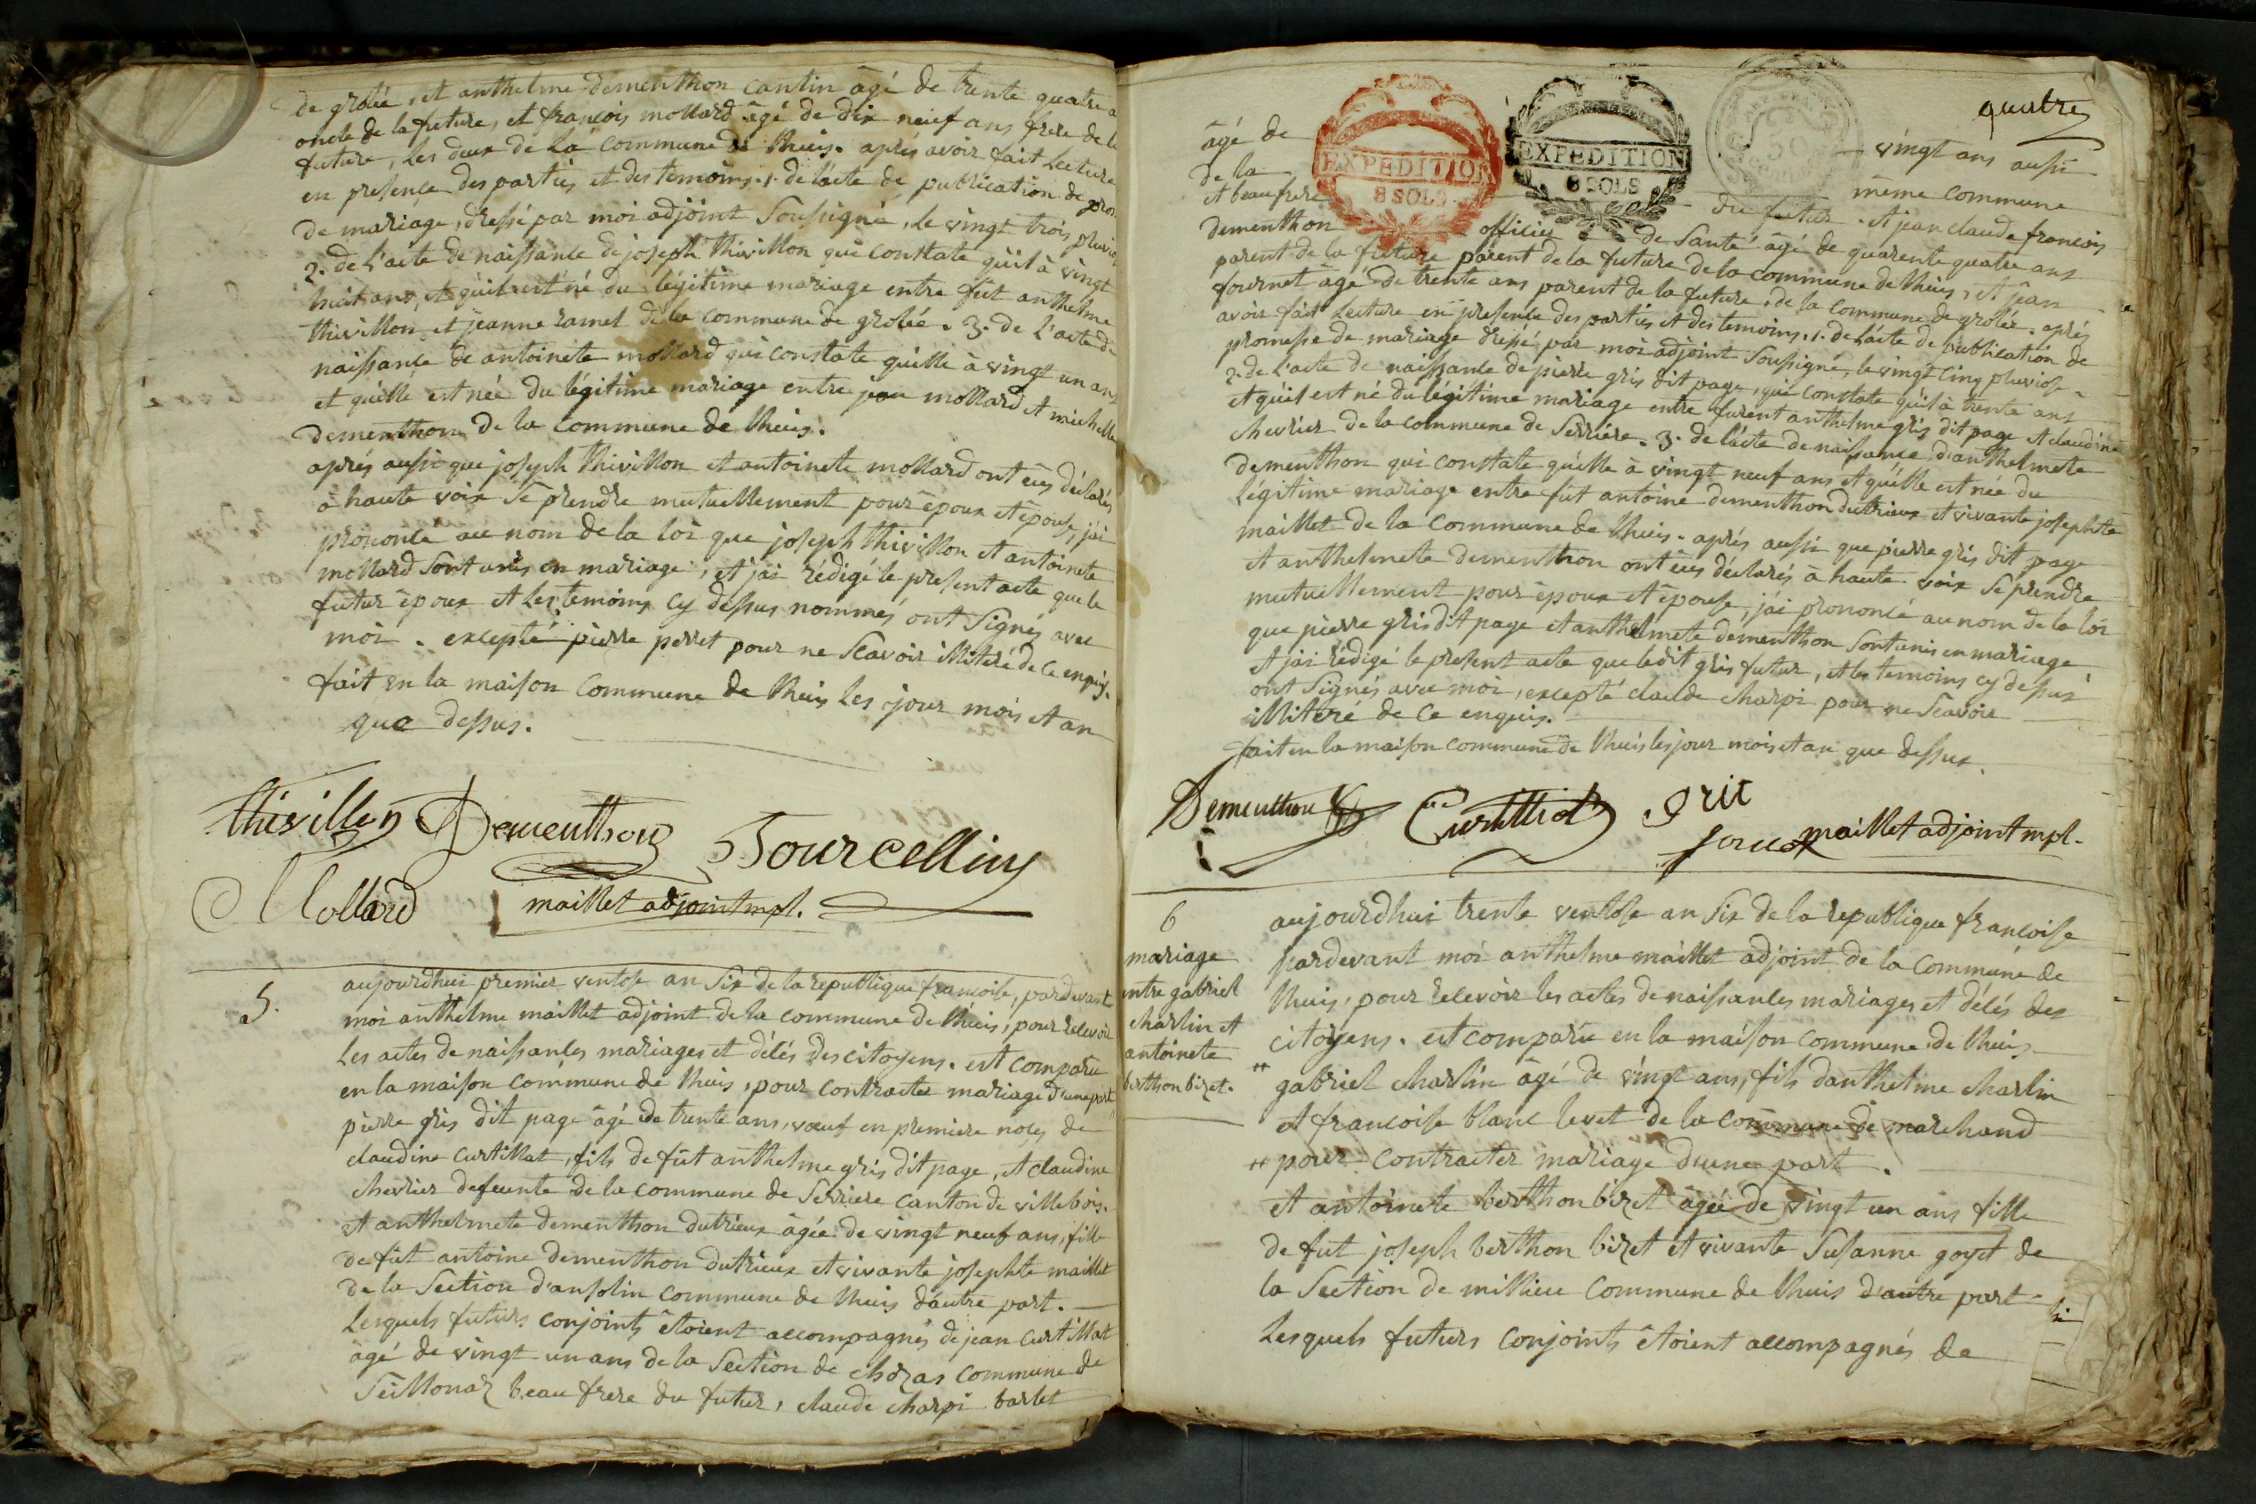 de groléé, et anthelme dementhon cantin âgé de trente quatre a
oncle de la future, et francois mollard âgé de dix neuf ans frere de la
future, les deux de la commune de lhuis. aprés avoir fait lecture
en presence des parties et des temoins. 1. de l'acte de publication de prom
de mariage, dressé par moi adjoint soussigné, le vingt trois pluvio
2. de l'acte de naissance de joseph thivillon qui constate qu'il à vingt
huit ans, et qu'il est né du légitime mariage entre fût anthelme
thivillon et jeanne ramel de la commune de groléé. 3. de l'acte de
naissance de antoinete mollard qui constate qu'elle à vingt un ans
et qu'elle est née du légitime mariage entre jean mollard et michelle
dementhon de la commune de lhuis.
aprés aussi que joseph thivillon et antoinete mollard ont êus déclarés
à haute voix se prendre mutuellement pour êpoux et êpouse, j'ai
prononcé au nom de la loi que joseph thivillon et antoinete
mollard sont unis en mariage, et j'ai rédigé le present acte que le
futur êpoux et les temoins cy dessus nommés ont signés avec
moi. excepté pierre perret pour ne scavoir illiteré de ce enquis.
fait en la maison commune de lhuis les jour mois et an
que dessus.
thivillon Dementhon Tourcellin
Mollard maillet adjoint mpl.
5. aujourdhui premier ventose an six de la republique francoise, pardevant
moi anthelme maillet adjoint de la commune de lhuis, pour recevoir
les actes de naissances mariages et décés des citoyens. est comparu
en la maison commune de lhuis, pour contracter mariage d'une part
pierre gris dit page âgé de trente ans, veuf en premiere noces de
claudine curtillat, fils de fût anthelme gris dit page, et claudine
chevrier defeunte de la commune de serriere canton de villebois.
et anthelmete dementhon dutrieux âgée de vingt neuf ans, fille
de fût antoine dementhon dutrieux et vivante josephte maillet
de la section d'ansolin commune de lhuis d'autre part.
lesquels futurs conjoints êtoient accompagnés de jean curtillat
âgé de vingt un ans de la section de chozas commune de
seillonaz beau frere du futur, claude charpi barlet
quatre
EXPEDITION
8 SOLS
EXPEDITION
8 SOLS
âgé de vingt ans aussi
de la même commune
et beaufrere du futur. et jean claude francois
dementhon officier de santé âgé de quarente quatre ans
parent de la future parent de la future de la commune de lhuis, et jean
fournet âgé de trente ans parent de la future, de la commune de groléé. aprés
avoir fait lecture en presence des parties et des temoins. 1. de l'acte de publication de
promesse de mariage dressé par moi adjoint soussigné, le vingt cinq pluviose
2. de l'acte de naissance de pierre gris dit page, qui constate qu'il à trente ans
et qu'il est né du légitime mariage entre furent anthelme gris dit page et claudine
chevrier de la commune de serriére. 3. de l'acte de naissance d'anthelmete
dementhon qui constate qu'elle à vingt neuf ans et qu'elle est née du
légitime mariage entre fût antoine dementhon dutrieux et vivante josephte
maillet de la commune de lhuis. aprés aussi que pierre gris dit page
et anthelmete dementhon ont êus déclarés à haute voix se prendre
mutuellement pour êpoux et êpouse, j'ai prononcé au nom de la loi
que pierre gris dit page et anthelmete dementhon sont unis en mariage
et j'ai rédigé le present acte que ledit gris futur, et les temoins cy dessus
ont signés avec moi, excepté claude charpi pour ne scavoir
illiteré de ce enquis.
fait en la maison commune de lhuis les jour mois et an que dessus.
Dementhon Curtillat gris
maillet adjoint mpl.
6
mariage
entre gabriel
charlin et
antoinete
berthon bizet.
aujourdhui trente ventose an six de la republique francoise
pardevant moi anthelme maillet adjoint de la commune de
lhuis, pour recevoir les actes de naissances mariages et décés des
citoyens. est comparu en la maison commune de lhuis
gabriel charlin âgé de vingt ans, fils d'anthelme charlin
et francoise blanc levet de la commune de marchand
pour contracter mariage d'une part.
et antoinete berthon bizet âgée de vingt un ans fille
de fut joseph berthon bizet et vivante susanne goyet de
la section de millieu commune de lhuis d'autre part
lesquels futurs conjoints êtoient accompagnés de